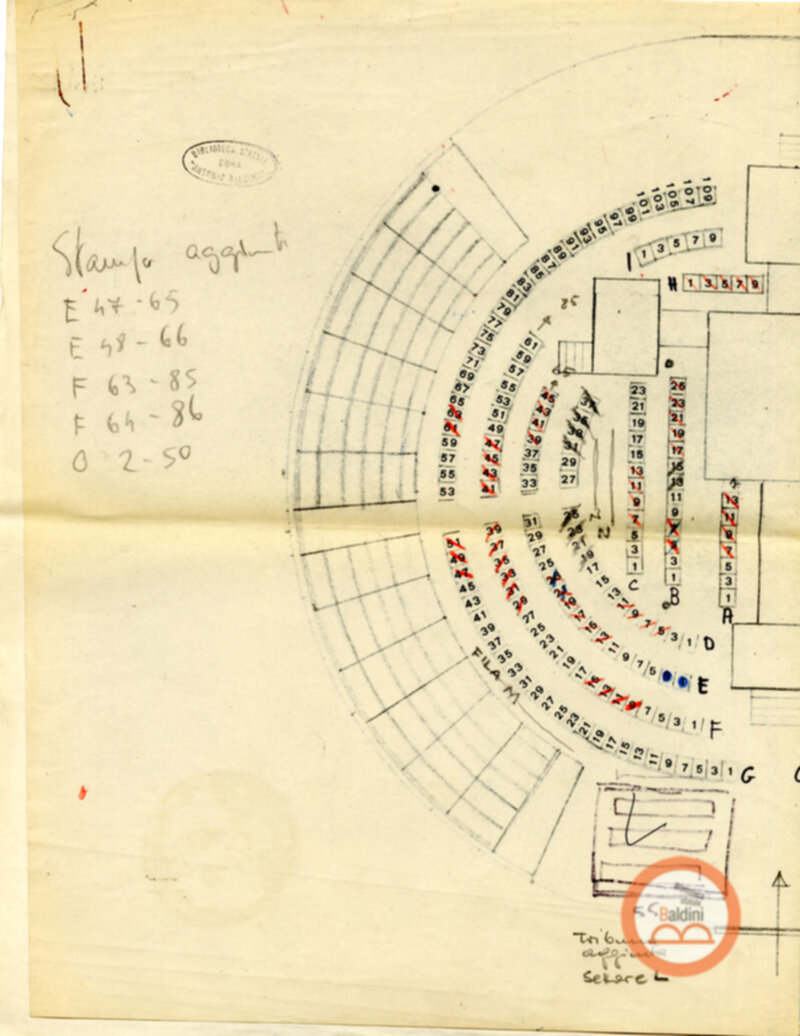 BIBLIOTECA STATALE
ROMA
Stampa aggiunti
E 47-65
E 48-66
F 63-85
F 64-86
O 2-50
109
107
105
103
101
99
97
95
93
91
89
87
85
83
81
79
77
75
73
71
69
67
65
63
61
59
57
55
53
I 1 3 5 7 9
H 1 3 5 7 9
85
61
59
57
55
53
51
49
47
45
43
41
65
45
43
41
39
37
35
33
29
27
23
21
19
17
15
13
11
9
7
5
3
1
C
25
23
21
19
17
15
13
11
9
7
5
3
1
B
13
11
9
7
5
3
1
A
25
23
21
19
17
15
13
11
9
7
5
3
1
D
31
29
27
25
23
21
19
17
15
13
11
9
7
5
E
39
37
35
33
31
29
27
25
23
21
19
17
15
13
11
9
7
5
3
1
F
51
49
47
45
43
41
39
37
35
33
31
29
27
25
23
21
19
17
15
13
11
9
7
5
3
1
G
FILA M
Baldini
Tribuna
aggiunta
Settore L